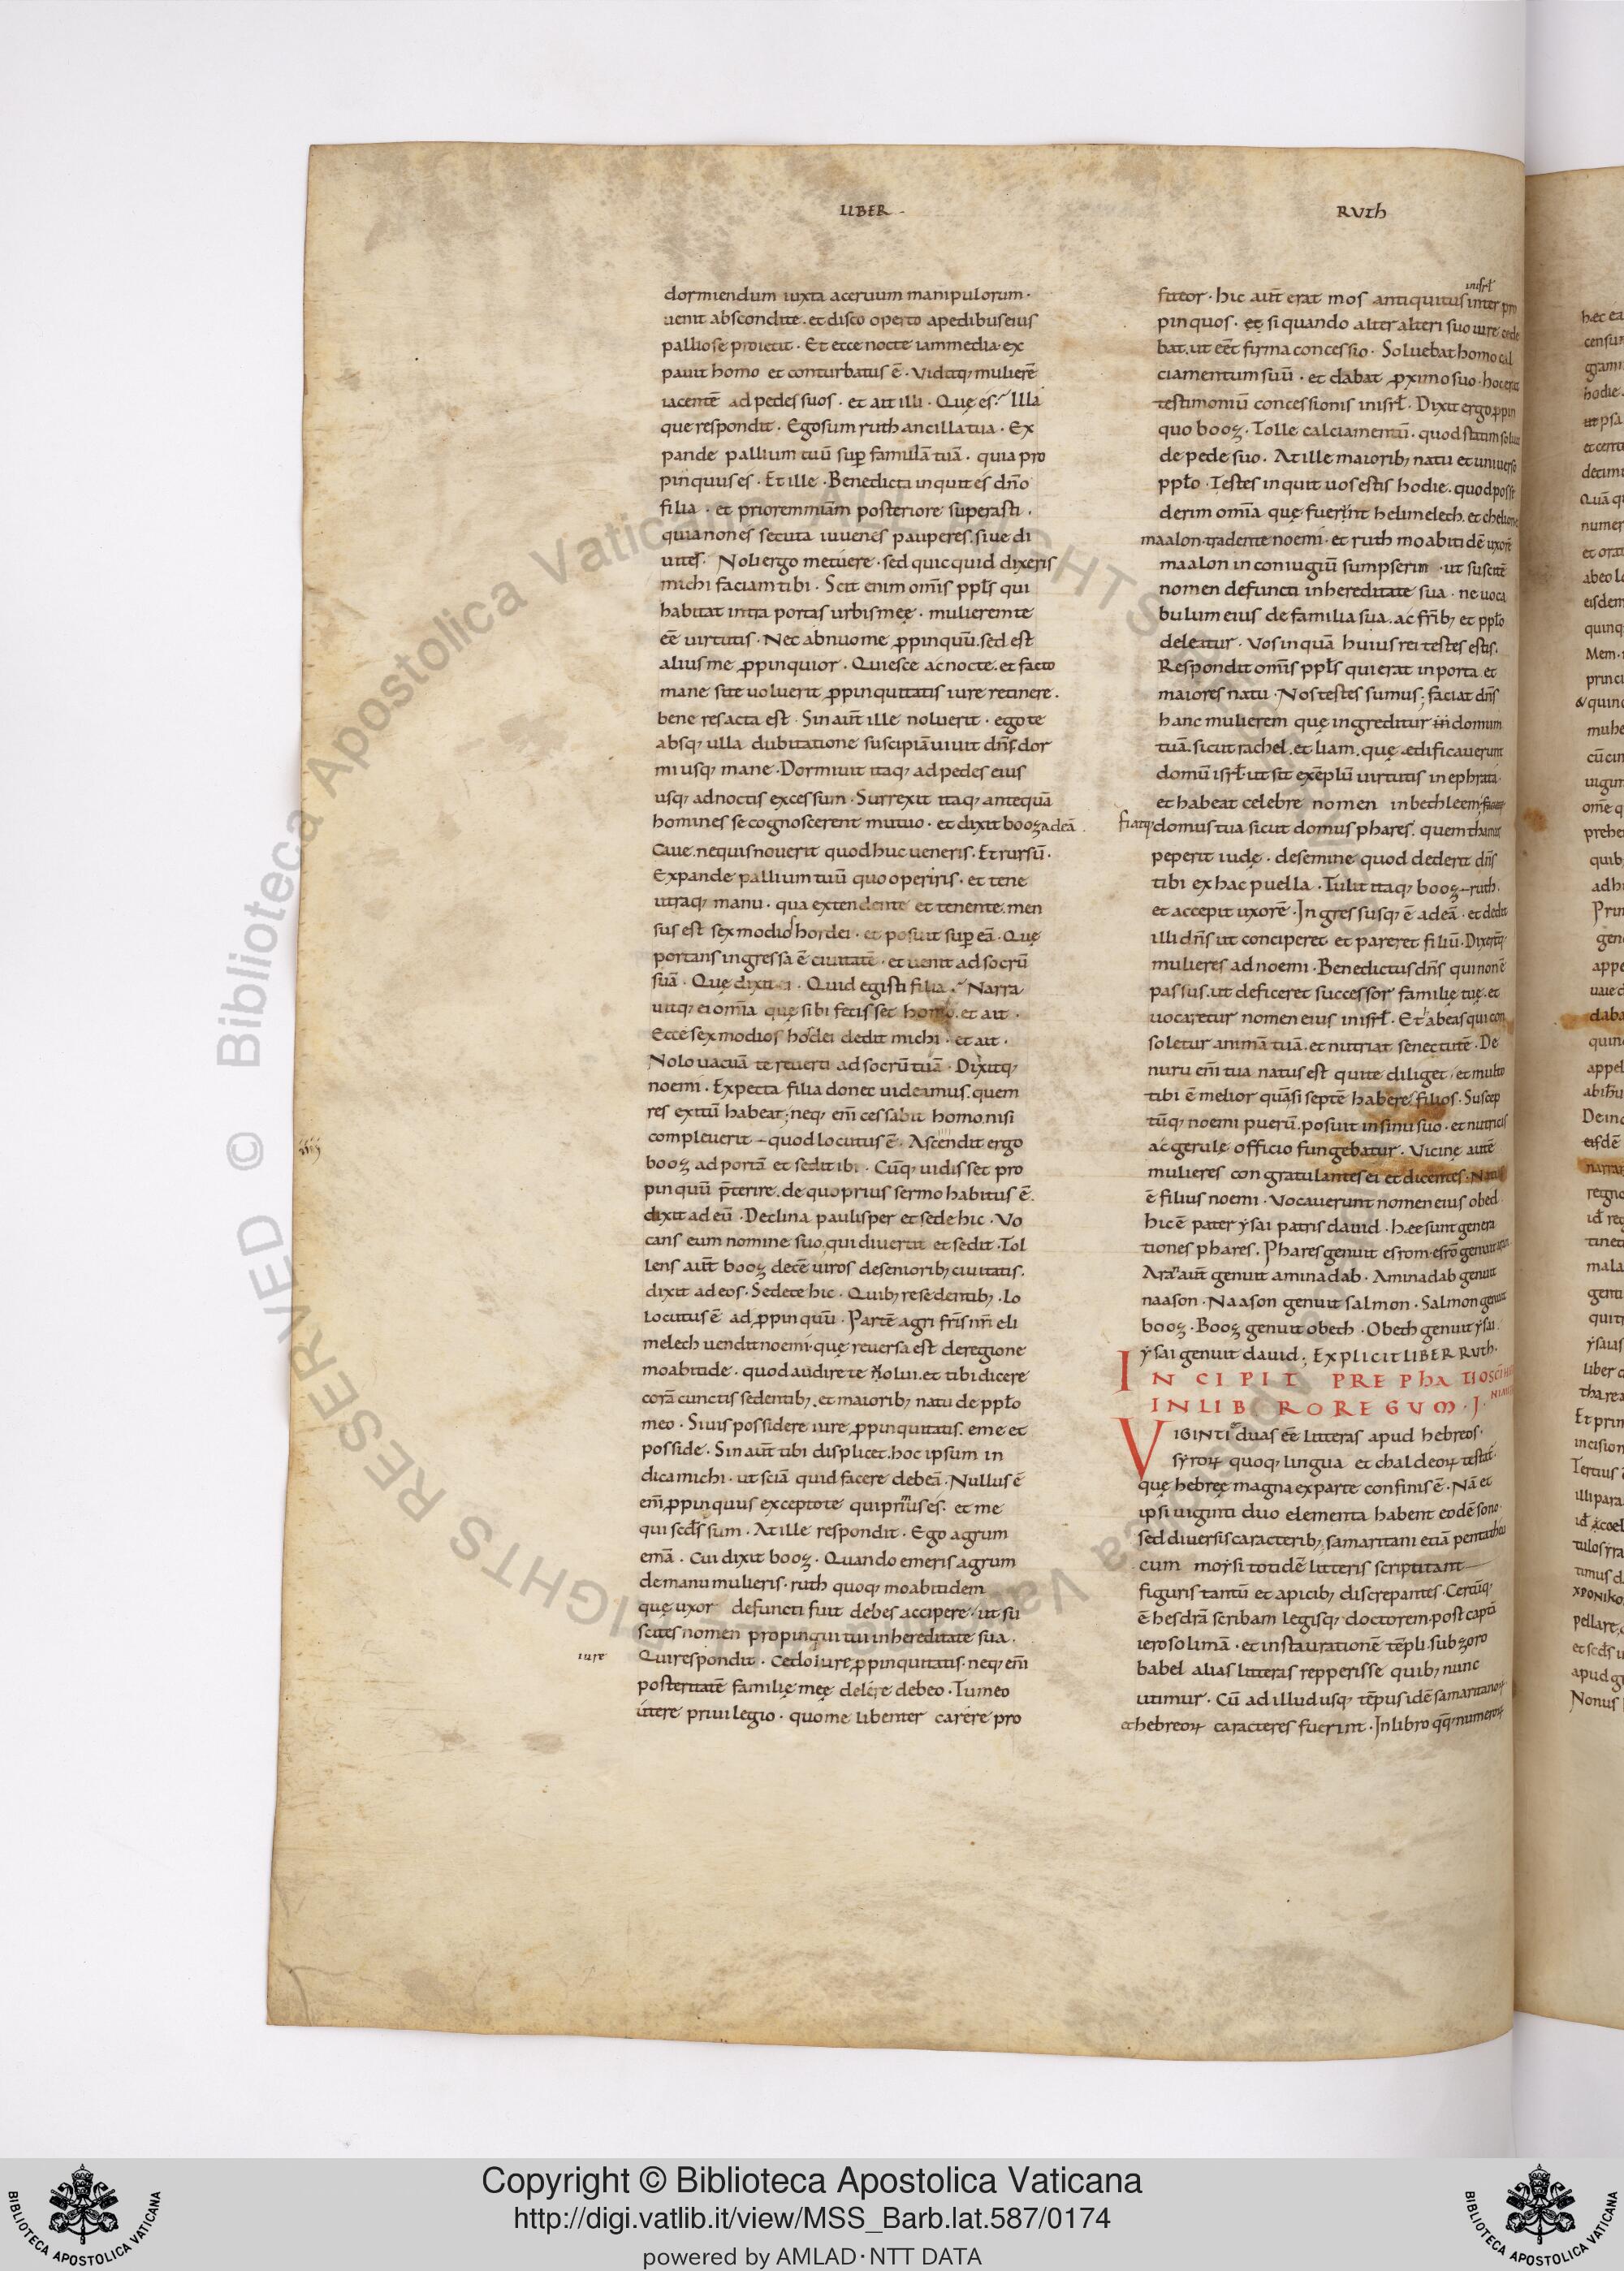 LIBER
RUth
dormiendum iuxta aceruum manipulorum ·
uenit abscondite . et disco operto apedibus eius
pallio se proiecit · Et ecce nocte iam media · ex
pauit homo et conturbatus ē · Viditq; mulierē
iacentē ad pedes suos · et ait illi · Quę es? Illa
que respondit · Ego sum ruth ancilla tua · Ex
pande pallium tuū sup famulā tuā · quia pro
pinquus es · Et ille · Benedicta inquit es dn̄o
filia · et priorem mīam posteriore superasti ·
quia non es secuta iuuenes pauperes . siue di
uites · Noli ergo metuere · sed quicquid dixeris
michi faciam tibi · Scit enim om̄is ppl̄s qui
habitat intra portas urbis meę · mulierem te
eē uirtutis · Nec abnuo me ꝓpinquū . sed est
alius me ꝓpinquior · Quiesce ac nocte . et facto
mane si te uoluerit ꝓpinquitatis iure retinere .
bene res acta est · Sin aut̄ ille noluerit · ego te
absq; ulla dubitatione suscipiā uiuit dn̄s . dor
mi usq; mane · Dormiuit itaq; ad pedes eius
usq; ad noctis excessum · Surrexit itaq; antequā
homines se cognoscerent mutuo · et dixit booz ad eā .
Caue . nequis nouerit quod huc ueneris . Et rursū ·
Expande pallium tuū quo operiris · et tene
utraq; manu · qua extendente et tenente . men
sus est sex modios hordei · et posuit sup eā · Quę
portans ingressa ē ciuitatē · et uenit ad socrū
suā · Quę dixit ei · Quid egisti filia ? Narra
uitq; ei omīa quę sibi fecisset homo . et ait ·
Ecce sex modios hordei dedit michi · et ait ·
Nolo uacuā te reuerti ad socrū tuā · Dixitq;
noemi · Expecta filia donec uideamus . quem
res exitū habeat ; neq; em̄ cessabit homo . nisi
compleuerit quod locutus ē . Ascendit ergo
booz ad portā et sedit ibi · Cūq; uidisset pro
pinquū p̄terire . de quo prius sermo habitus ē .
dixit ad eū · Declina paulisper et sede hic · Vo
cans eum nomine suo . qui diuertit et sedit . Tol
lens aut̄ booz decē uiros de seniorib; ciuitatis .
dixit ad eos · Sedete hic · Quib; resedentib; · Lo
locutus ē ad ꝓpinquū · Partē agri fr̄is nr̄i eli
melech uendit noemi · quę reuersa est de regione
moabitide · quod audire te uolui . et tibi dicere
corā cunctis sedentib; . et maiorib; natu de ppl̄o
meo · Si uis possidere iure ꝓpinquitatis . eme et
posside · Sin aut̄ tibi displicet . hoc ipsum in
dica michi · ut sciā quid facere debeā · Nullus ē
em̄ ꝓpinquus excepto te qui primus es · et me
qui scd̄s sum · At ille respondit · Ego agrum
emā · Cui dixit booz · Quando emeris agrum
de manu mulieris · ruth quoq; moabitidem
quę uxor defuncti fuit debes accipere · ut su
scites nomen propinqui tui in hereditate sua .
iure
Qui respondit · Cedo iure ꝓpinquitatis · neq; em̄
posteritatē familię meę delere debeo · Tu meo
utere priuilegio · quo me libenter carere pro
inisrl̄
fiteor · hic aut̄ erat mos antiquitus inter pro
pinquos · et si quando alter alteri suo iure cede
bat . ut eēt firma concessio · Soluebat homo cal
ciamentum suū · et dabat ꝓximo suo · hoc erat
testimoniū concessionis in isrl̄ · Dixit ergo ꝓpin
quo booz · Tolle calciamentū · quod statim soluit
de pede suo · At ille maiorib; natu et uniuerso
ppl̄o · Testes inquit uos estis hodie . quod posse
derim omīa quę fuerint helimelech . et chelion
maalon · tradente noemi · et ruth moabitidē uxorē
maalon in coniugiū sumpserim · ut suscitē
nomen defuncti in hereditate sua · ne uoca
bulum eius de familia sua . ac fr̄ib; et ppl̄o
deleatur · Vos inquā huius rei testes estis .
Respondit om̄is ppl̄s qui erat in porta . et
maiores natu · Nos testes sumus ; faciat dn̄s
hanc mulierem quę ingreditur in domum
tuā . sicut rachel . et liam . quę ędificauerunt
domū isrl̄ · ut sit exēplū uirtutis in ephrata ·
et habeat celebre nomen in bethleem
fiatq; domus tua sicut domus phares . quem thamar
peperit iudę · de semine quod dederit dn̄s
tibi ex hac puella · Tulit itaq; booz ruth ·
et accepit uxorē · Ingressusq; ē ad eā · et dedit
illi dn̄s ut conciperet et pareret filiū · Dixerūtq;
mulieres ad noemi · Benedictus dn̄s qui non ē
passus . ut deficeret successor familię tuę . et
uocaretur nomen eius in isrl̄ · Et habeas qui con
soletur animā tuā . et nutriat senectutē · De
nuru em̄ tua natus est qui te diliget · et multo
tibi ē melior quā si septē habere filios · Suscep
tūq; noemi puerū . posuit in sinu suo · et nutricis
ac gerulę officio fungebatur · Vicinę autē
mulieres congratulantes ei et dicentes · Natus
ē filius noemi · Vocauerunt nomen eius obed
hic ē pater ysai patris dauid · hęe sunt genera
tiones phares . Phares genuit esrom · esrō genuit aram
Aram aut̄ genuit aminadab · Aminadab genuit
naason · Naason genuit salmon · Salmon genuit
booz · Booz genuit obeth · Obeth genuit ysai ·
ysai genuit dauid ; EXPLICIT LIBER RUth ·
INCIPIT PREPhATIO SCI HIERO
NIMI
IN LIBRO REGUM · I ·
VIGINTI duas eē litteras apud hebreos ·
syroꝝ quoq; lingua et chaldeoꝝ testat̄ ·
quę hebręę magna ex parte confinis ē · Nā et
ipsi uiginti duo elementa habent eodē sono ·
sed diuersis caracterib; ; samaritani etiā pentatheu
cum moysi totidē litteris scriptitant
figuris tantū et apicib; discrepantes · Certūq;
ē hesdrā scribam legisq; doctorem · post captā
ierosolimā · et instaurationē tēpli . sub zoro
babel alias litteras repperisse quib; nunc
utimur · Cū ad illud usq; tēpus idē samaritanoꝝ
et hebreoꝝ caracteres fuerint · In libro qq; numeroꝝ
Copyright © Biblioteca Apostolica Vaticana
http://digi.vatlib.it/view/MSS_Barb.lat.587/0174
powered by AMLAD·NTT DATA